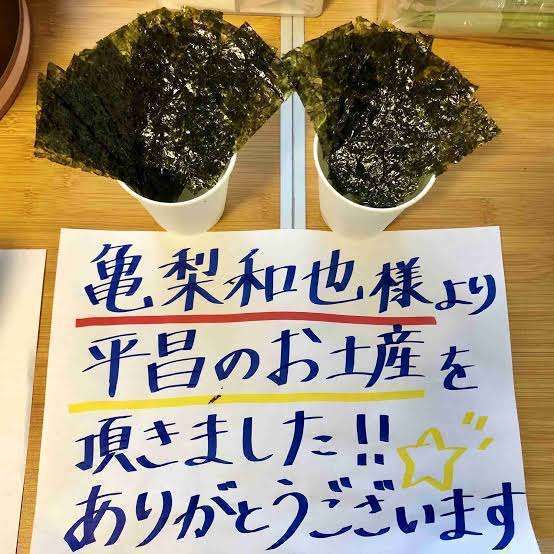 亀梨和也様より
平昌のお土産を
頂きました!!
ありがとうございます